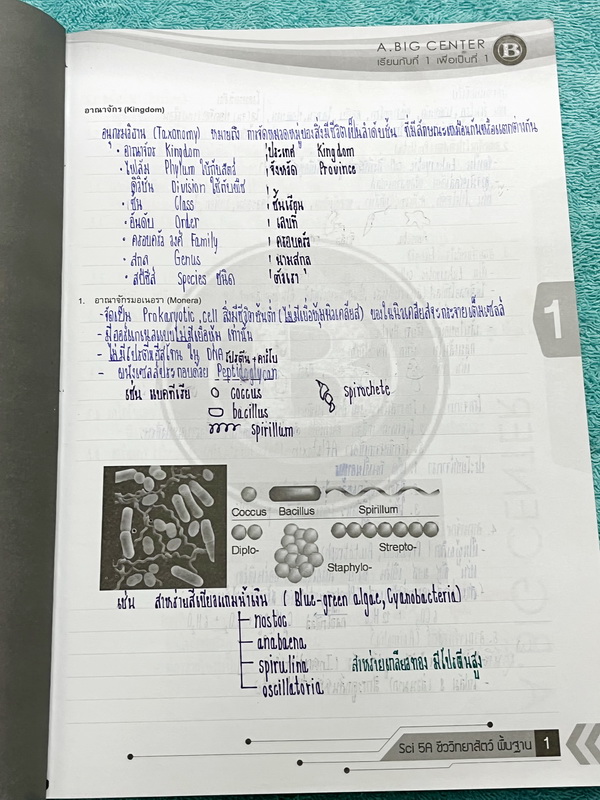 A.BIG CENTER
B
เรียนกับที่ 1 เพื่อเป็นที่ 1
อาณาจักร (Kingdom)
อนุกรมวิธาน (Taxonomy) หมายถึง การจัดหมวดหมู่ของสิ่งมีชีวิตเป็นลำดับขั้น ที่มีลักษณะเหมือนกันหรือแตกต่างกัน
• อาณาจักร Kingdom ประเทศ Kingdom
• ไฟลัม Phylum ใช้กับสัตว์ จังหวัด Province
ดิวิชัน Division ใช้กับพืช
• ชั้น Class ชั้นเรียน
• อันดับ Order เลขที่
• ครอบครัว วงศ์ Family ครอบครัว
• สกุล Genus นามสกุล
• สปีชีส์ Species ชนิด ตัวเรา
1. อาณาจักรมอเนอรา (Monera)
- จัดเป็น Prokaryotic cell สิ่งมีชีวิตชั้นต่ำ (ไม่มีเยื่อหุ้มนิวเคลียส) ของในนิวเคลียสจะกระจายเต็มเซลล์
- มีออร์แกเนลแบบไม่มีเยื่อหุ้ม เท่านั้น
- ไม่มีโปรตีนฮีสโทน ใน DNA โปรตีน + คาร์โบ
- ผนังเซลล์ประกอบด้วย Peptidoglycan
เช่น แบคทีเรีย coccus spirochete
bacillus
spirillum
Coccus Bacillus Spirillum
Diplo- Strepto-
Staphylo-
เช่น สาหร่ายสีเขียวแกมน้ำเงิน ( Blue-green algae, Cyanobacteria)
nostoc
anabaena
spirulina สาหร่ายเกลียวทอง มีโปรตีนสูง
oscillatoria
1
Sci 5A ชีววิทยาสัตว์ พื้นฐาน 1